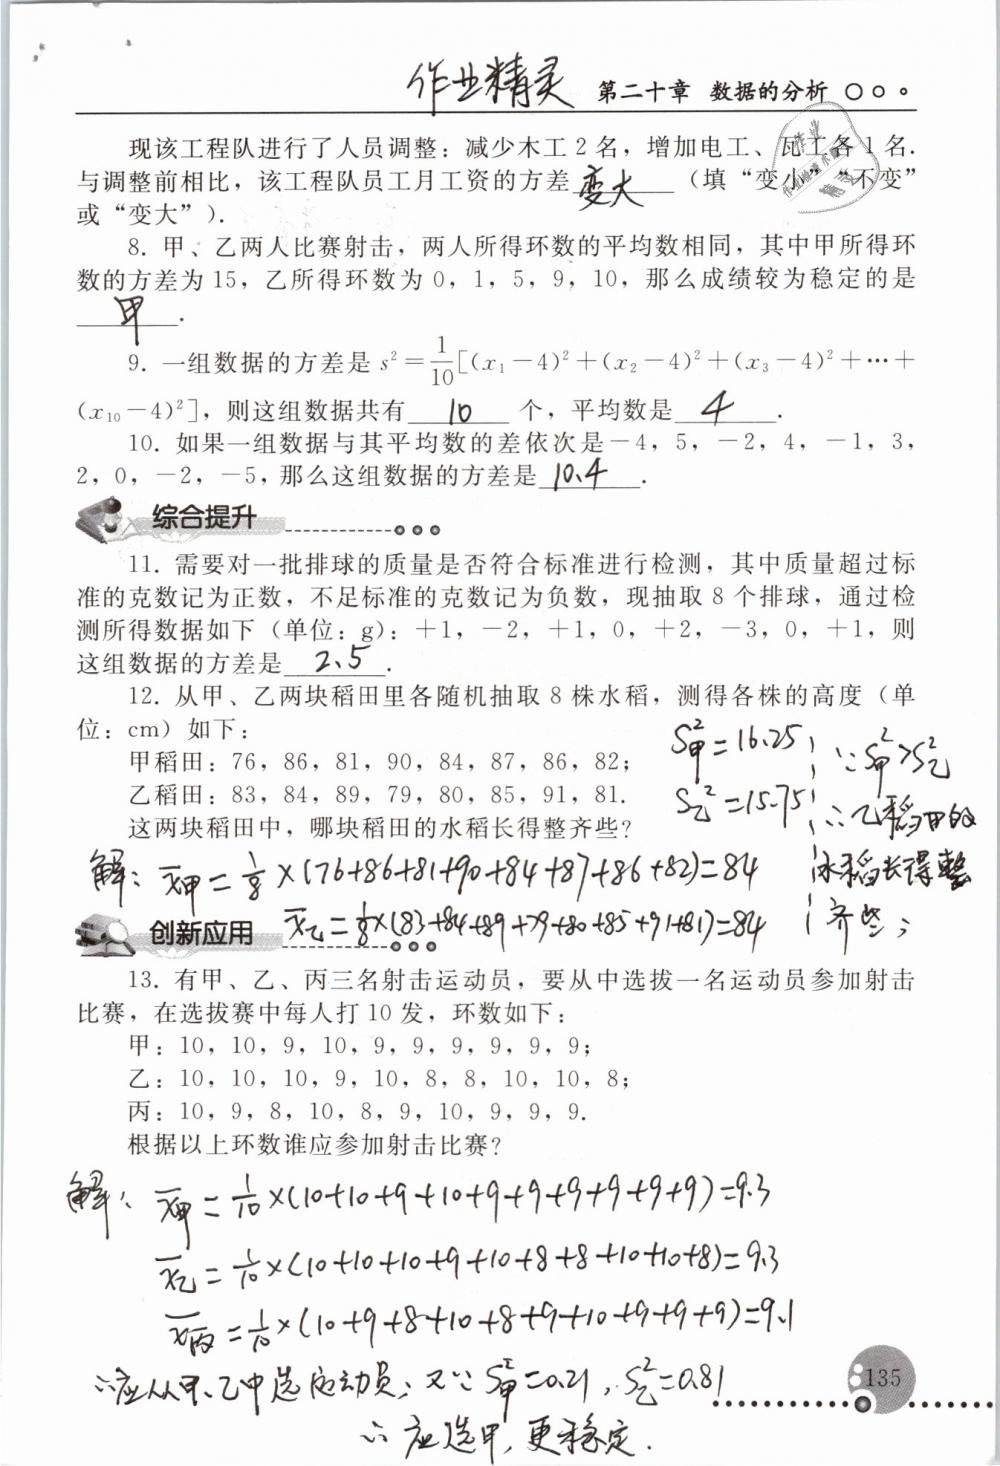 作业精灵 第二十章 数据的分析
现该工程队进行了人员调整：减少木工 2 名，增加电工、瓦工各 1 名.
与调整前相比，该工程队员工月工资的方差 变大 （填“变小”“不变”
或“变大”）.
8. 甲、乙两人比赛射击，两人所得环数的平均数相同，其中甲所得环
数的方差为 15，乙所得环数为 0，1，5，9，10，那么成绩较为稳定的是
甲 .
9. 一组数据的方差是 s²＝1/10[(x₁－4)²＋(x₂－4)²＋(x₃－4)²＋…＋
(x₁₀－4)²]，则这组数据共有 10 个，平均数是 4 .
10. 如果一组数据与其平均数的差依次是－4，5，－2，4，－1，3，
2，0，－2，－5，那么这组数据的方差是 10.4 .
综合提升
11. 需要对一批排球的质量是否符合标准进行检测，其中质量超过标
准的克数记为正数，不足标准的克数记为负数，现抽取 8 个排球，通过检
测所得数据如下（单位：g）：＋1，－2，＋1，0，＋2，－3，0，＋1，则
这组数据的方差是 2.5 .
12. 从甲、乙两块稻田里各随机抽取 8 株水稻，测得各株的高度（单
位：cm）如下：
甲稻田：76，86，81，90，84，87，86，82；
乙稻田：83，84，89，79，80，85，91，81.
这两块稻田中，哪块稻田的水稻长得整齐些？
S²甲＝16.25
S²乙＝15.75
∵S²甲＞S²乙
∴乙稻田的
水稻长得整
齐些；
解：x̄甲＝1/8×(76+86+81+90+84+87+86+82)=84
x̄乙＝1/8×(83+84+89+79+80+85+91+81)=84
创新应用
13. 有甲、乙、丙三名射击运动员，要从中选拔一名运动员参加射击
比赛，在选拔赛中每人打 10 发，环数如下：
甲：10，10，9，10，9，9，9，9，9，9；
乙：10，10，10，9，10，8，8，10，10，8；
丙：10，9，8，10，8，9，10，9，9，9.
根据以上环数谁应参加射击比赛？
解：x̄甲＝1/10×(10+10+9+10+9+9+9+9+9+9)=9.3
x̄乙＝1/10×(10+10+10+9+10+8+8+10+10+8)=9.3
x̄丙＝1/10×(10+9+8+10+8+9+10+9+9+9)=9.1
∴应从甲、乙中选运动员；又∵S²甲=0.21，S²乙=0.81
∴应选甲，更稳定.
135